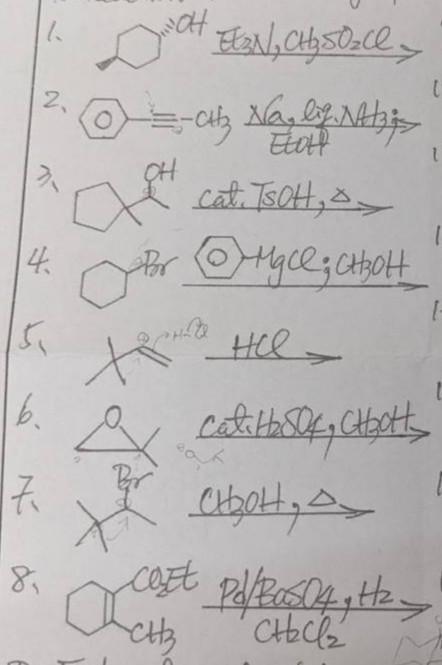 1. OH Et3N, CH3SO2Cl
2. CH3 Na, liq. NH3;
EtOH
3. OH cat. TsOH, Δ
4. Br MgCl; CH3OH
5. HCl
6. O cat. H2SO4, CH3OH
Br
7. CH3OH, Δ
8. CO2Et Pd/BaSO4, H2
CH3 CH2Cl2